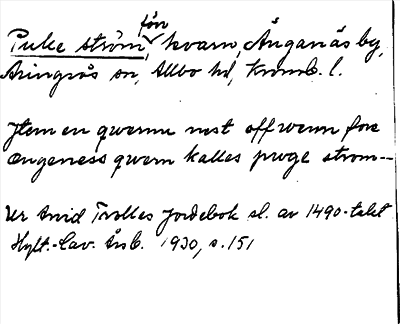 förr
Puke ström, kvarn, Ånganäs by,
Aringsås sn, Allbo hd, Kronob. l.
Jtem en qwernn nest offwenn fore
engeness qwern kalles pwge strom--
Ur Arvid Trolles Jordebok sl. av 1490-talet
Hylt.-Cav. Årsb. 1930, s. 151